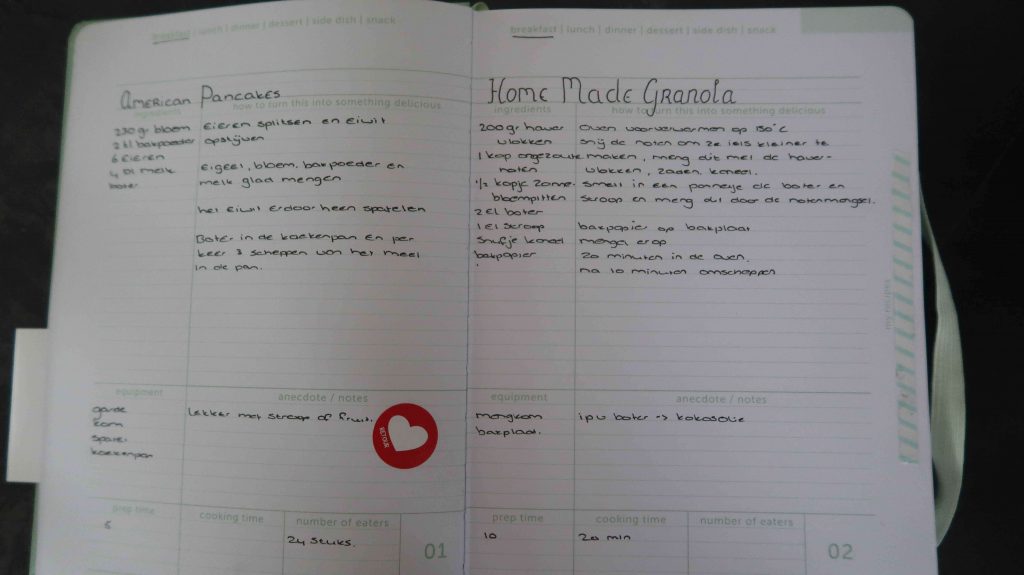 breakfast | lunch | dinner | dessert | side dish | snack
American Pancakes
ingredients
how to turn this into something delicious
230 gr bloem
2 tl bakpoeder
6 eieren
4 dl melk
boter
Eieren splitsen en eiwit
opstijven
Eigeel, bloem, bakpoeder en
melk glad mengen
het eiwit erdoorheen spatelen
Boter in de koekenpan en per
keer 3 scheppen van het meel
in de pan.
equipment
anecdote / notes
garde
kom
spatel
koekenpan
Lekker met stroop of fruit.
RETOUR
prep time
cooking time
number of eaters
24 stuks.
01
breakfast | lunch | dinner | dessert | side dish | snack
Home Made Granola
ingredients
how to turn this into something delicious
200 gr haver
vlokken
1 kop ongezoute
noten
1/2 kopje zonne-
bloempitten
2 el boter
1 el stroop
snufje kaneel
bakpapier
oven voorverwarmen op 150°C
snij de noten om ze iets kleiner te
maken, meng dit met de haver-
vlokken, zaden, kaneel.
smelt in een pannetje de boter en
stroop en meng dit door de notenmengsel.
bakpapier op bakplaat
mengsel erop
20 minuten in de oven.
na 10 minuten omscheppen
my recipes
equipment
anecdote / notes
mengkom
bakplaat.
ipv boter -> kokosolie
prep time
cooking time
number of eaters
10
20 min
02